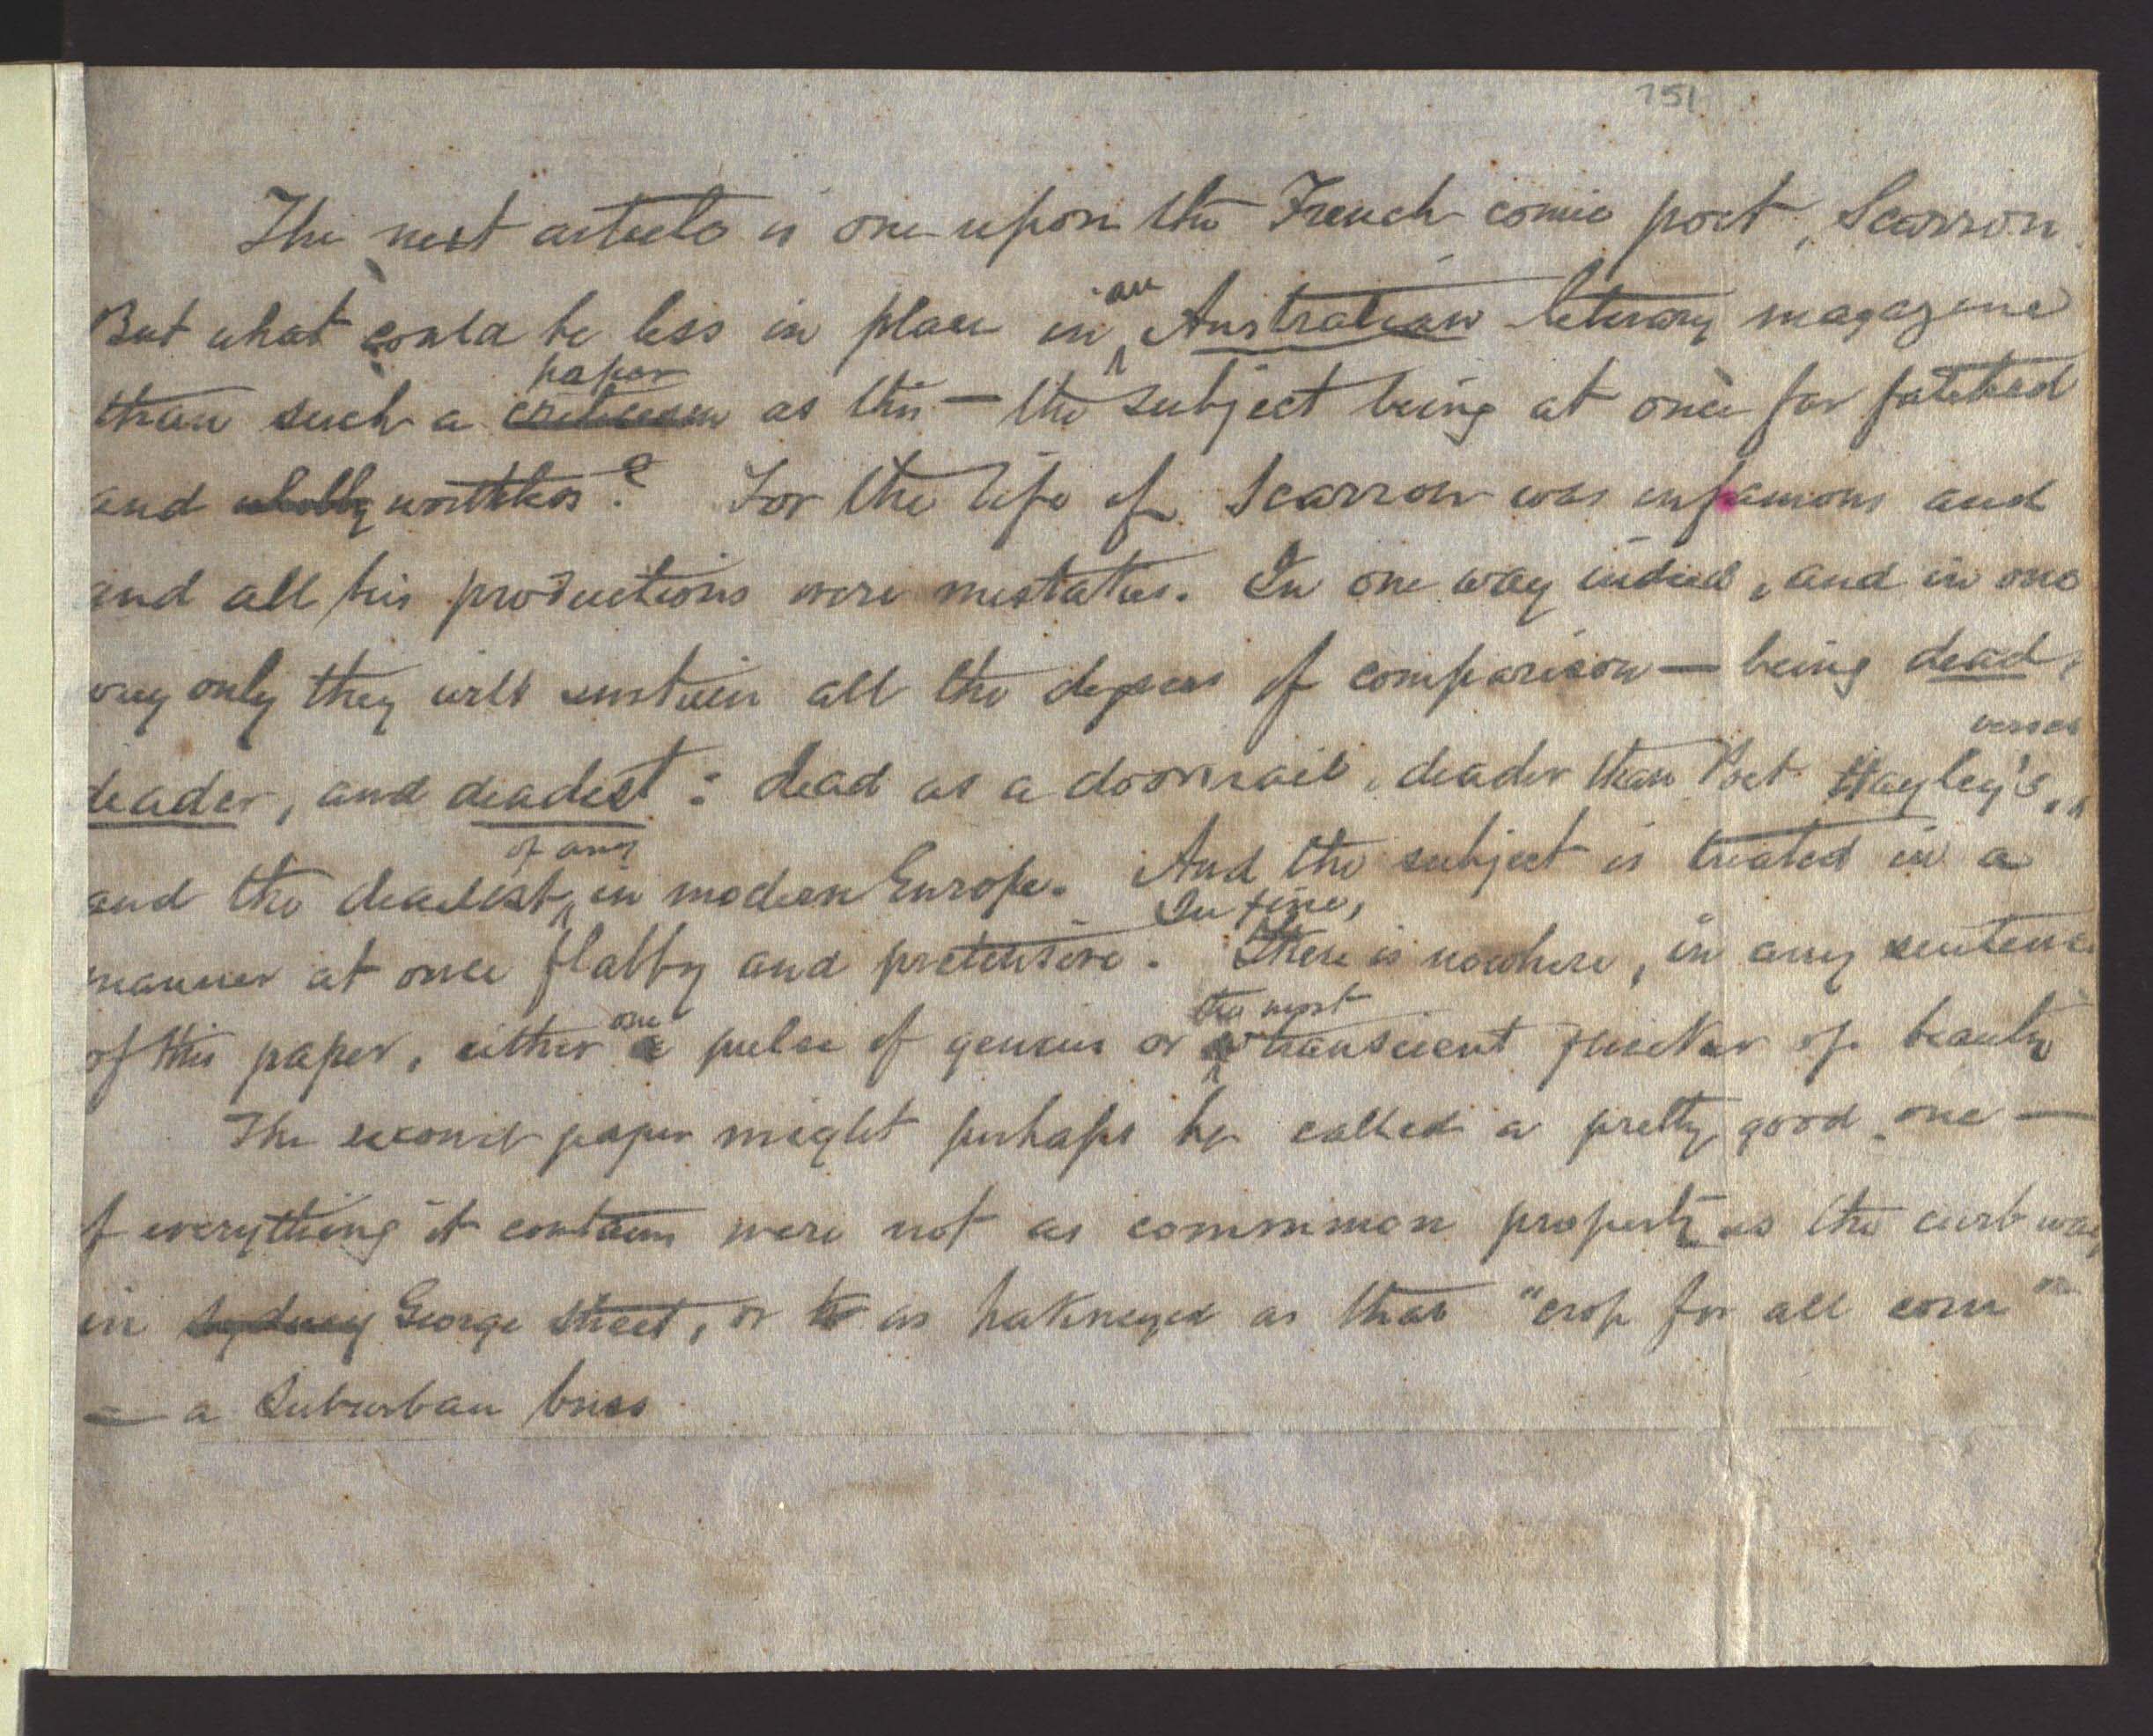 751
The next article is one upon the French comic poet, Scarron.
But what could be less in place in an Australian literary magazine
than such a criticism paper as this — the subject being at once far fetched
and wholly worthless? For the life of Scarron was infamous and
and all his productions were mistakes. In one way indeed, and in one
way only they will sustain all the degrees of comparison — being dead,
verses
deader, and deadest: dead as a doornail, deader than Poet Hayley's,
and the deadest of any in modern Europe. And the subject is treated in a
manner at once flabby and pretensive. In fine, there is nowhere, in any sentence
of this paper, either a one pulse of genius or the most transient flicker of beauty
The second paper might perhaps be called a pretty good one —
if everything it contains were not as common property as the curb way
in Sydney George Street, or to as hakneyed as that "crop for all corn"
— a Suburban buss